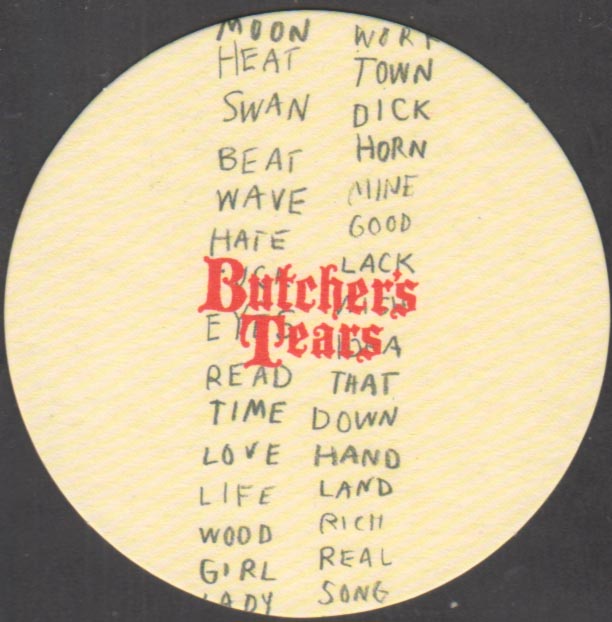 MOON WORT
HEAT TOWN
SWAN DICK
BEAT HORN
WAVE MINE
HATE GOOD
LACK
Butcher's
EYES
Tears
READ THAT
TIME DOWN
LOVE HAND
LIFE LAND
WOOD RICH
GIRL REAL
LADY SONG